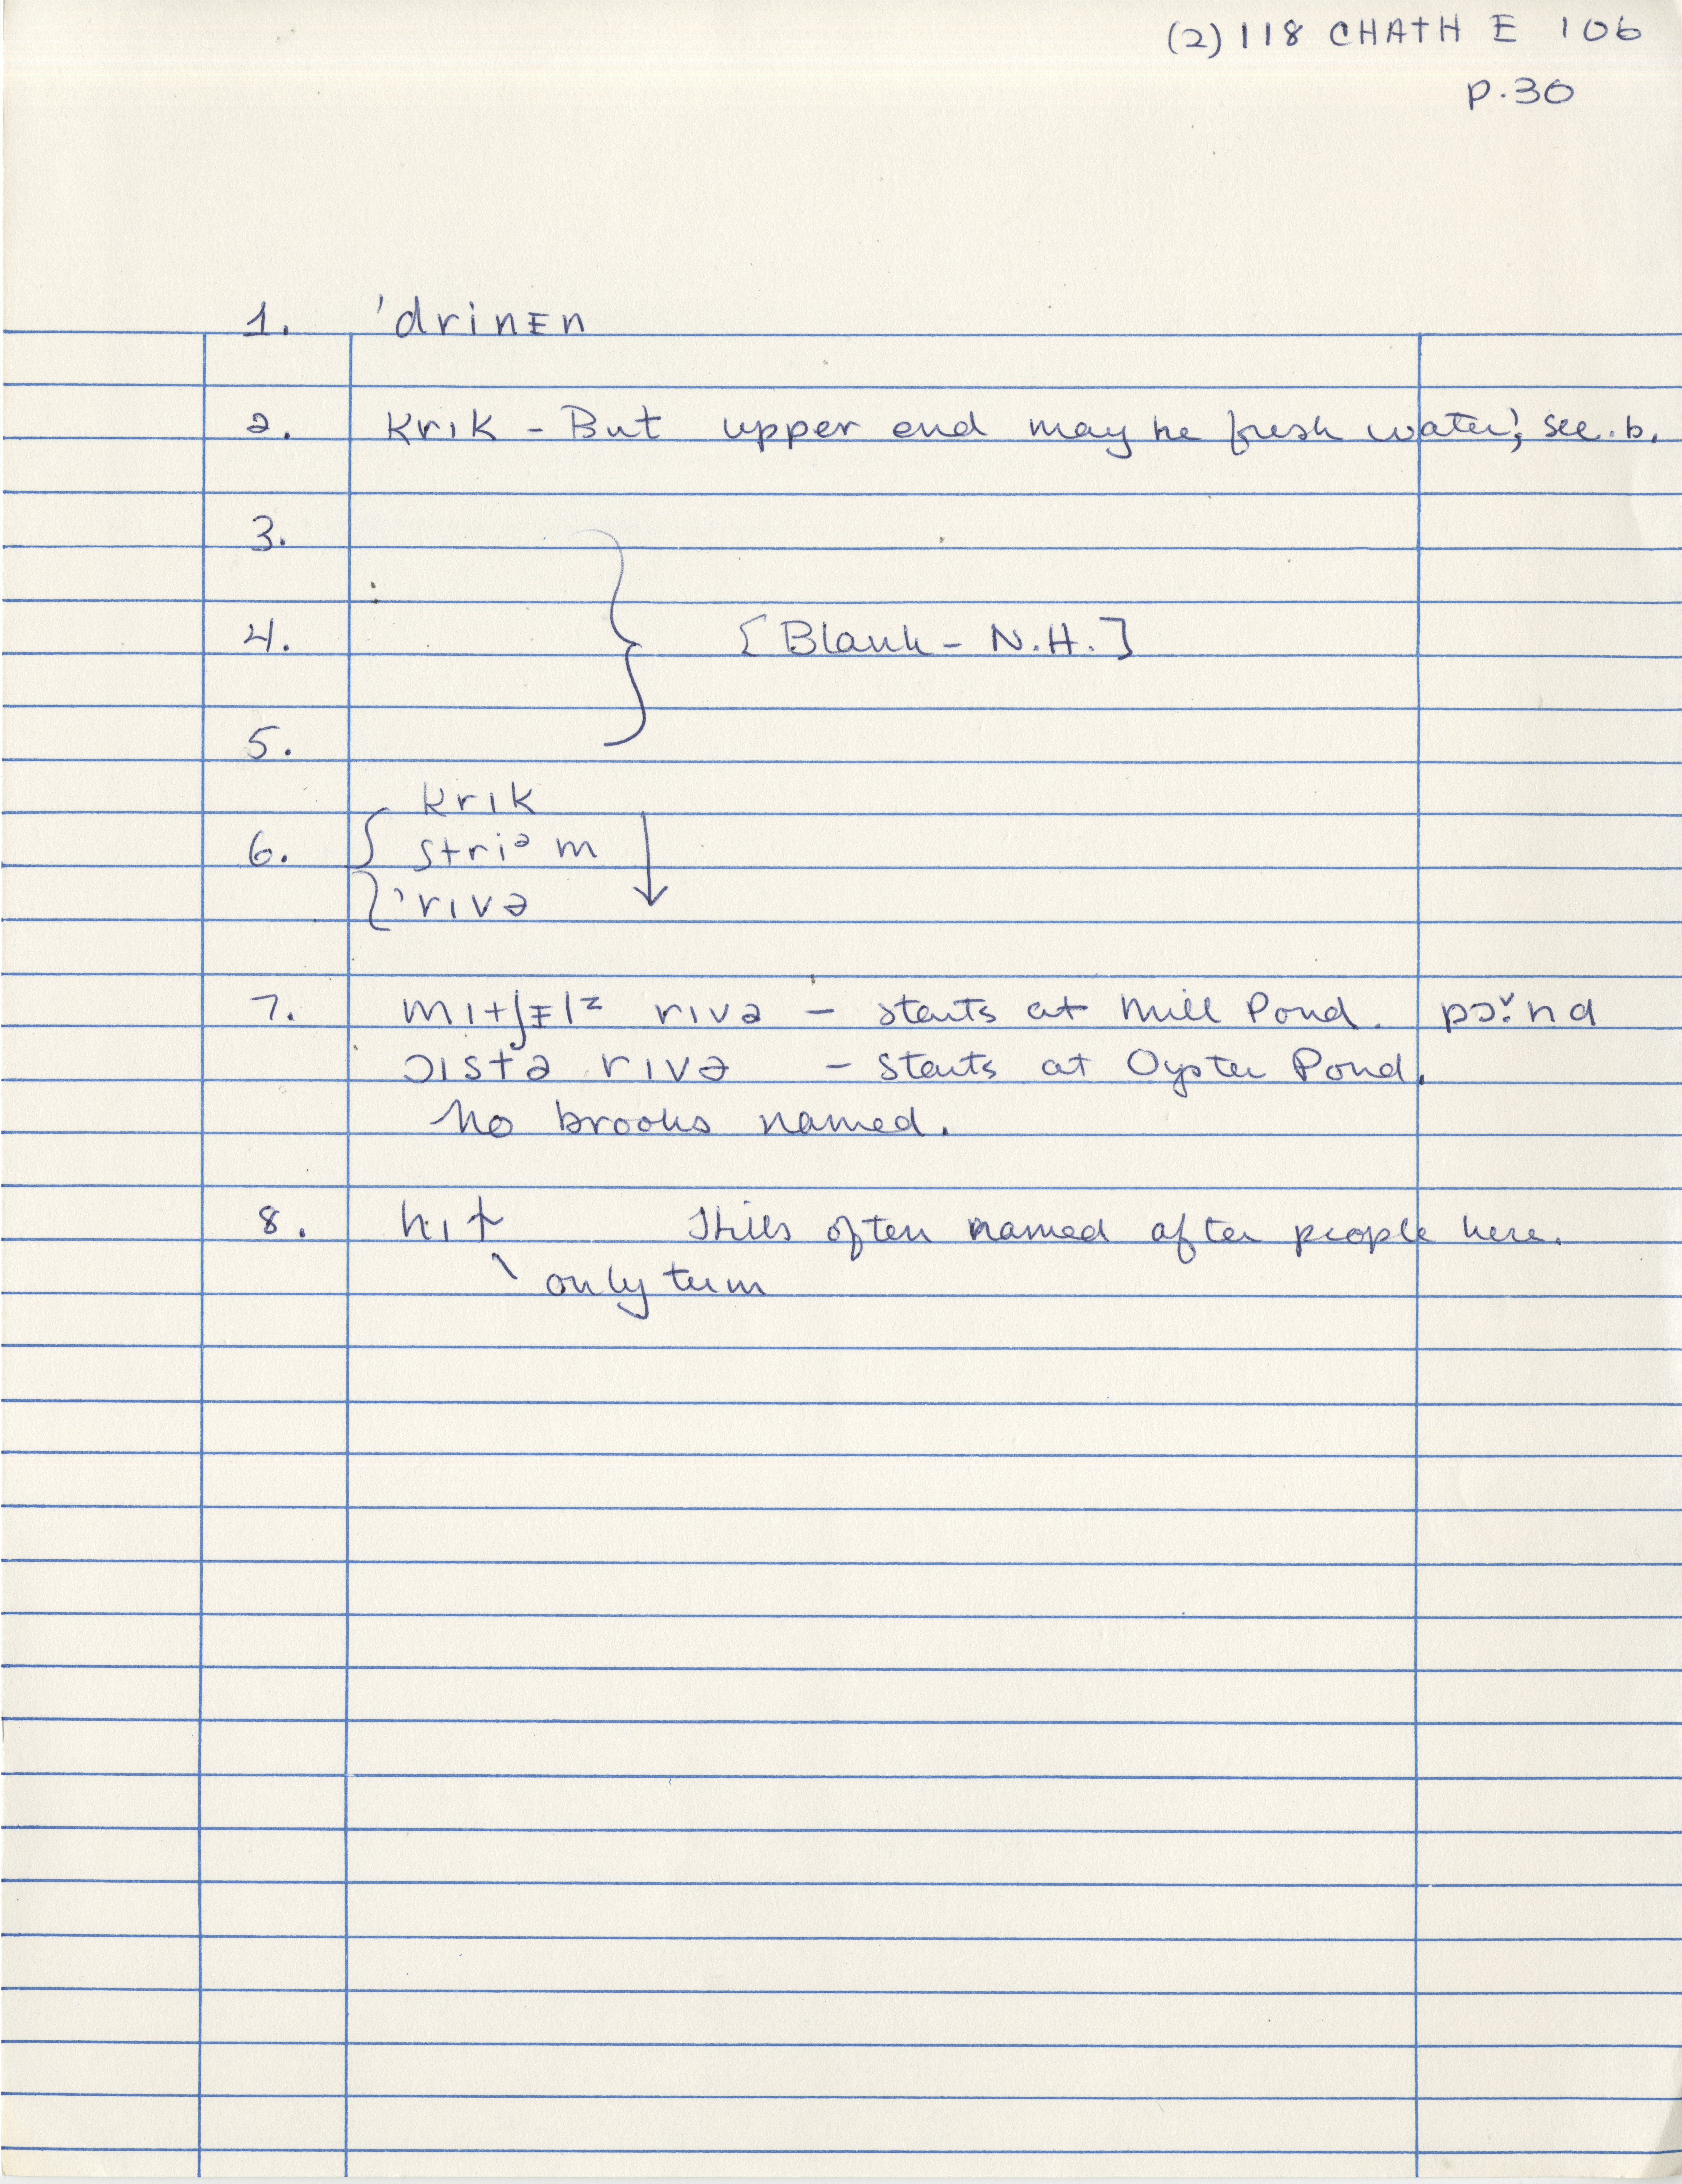 (2) 118 CHATH E 106
p.30
1. 'drinɪ̵n
2. krɪk - But upper end may be fresh water; see. b.
3.
4. [Blank - N.H.]
5.
krɪk
6. striᵊm
'rɪvə
7. mɪtʃɪ̵lᶻ rɪvə - starts at Mill Pond. pɔ̌:nd
ɔɪstə rɪvə - starts at Oyster Pond.
No brooks named.
8. hɪɫ Hills often named after people here.
only term